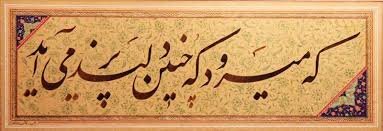 که میرود که چنین دلپذیر می آید